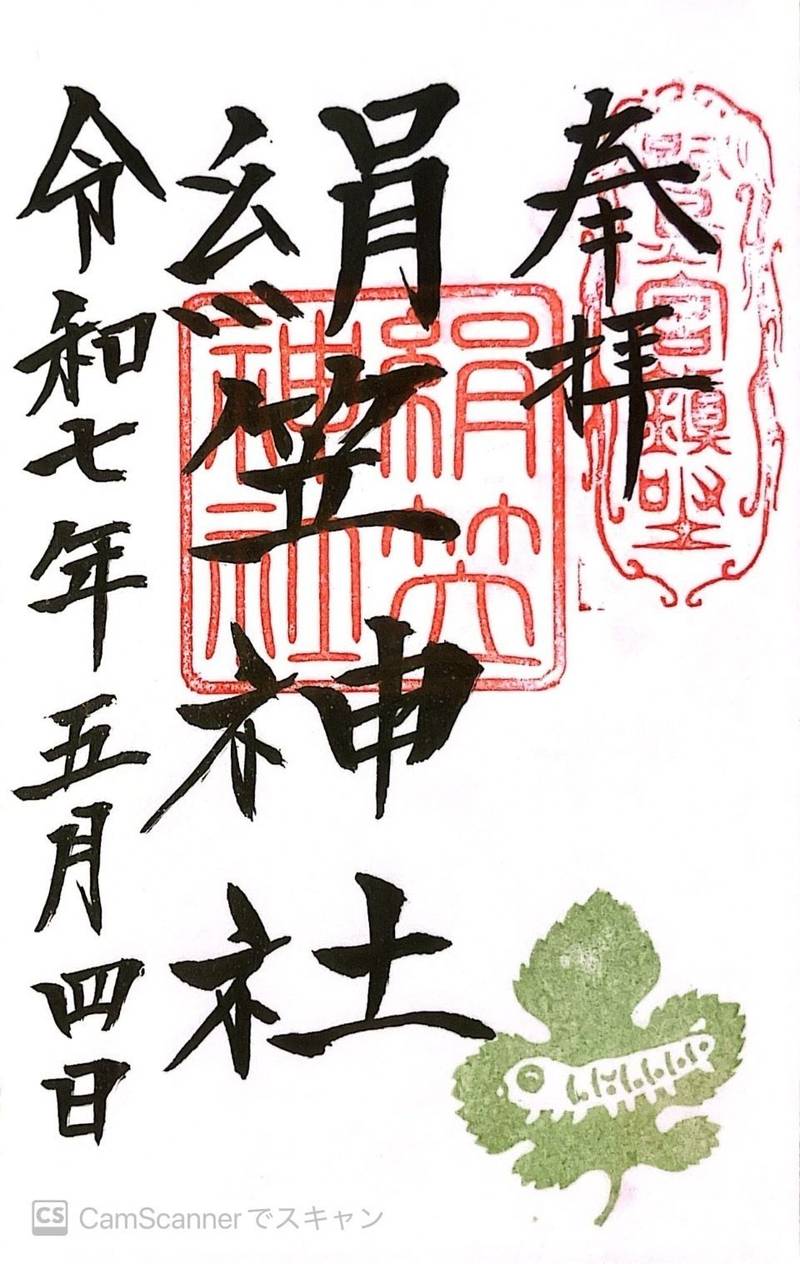 奉拝
絹笠神社
令和七年五月四日
絹笠
神社
CS CamScannerでスキャン